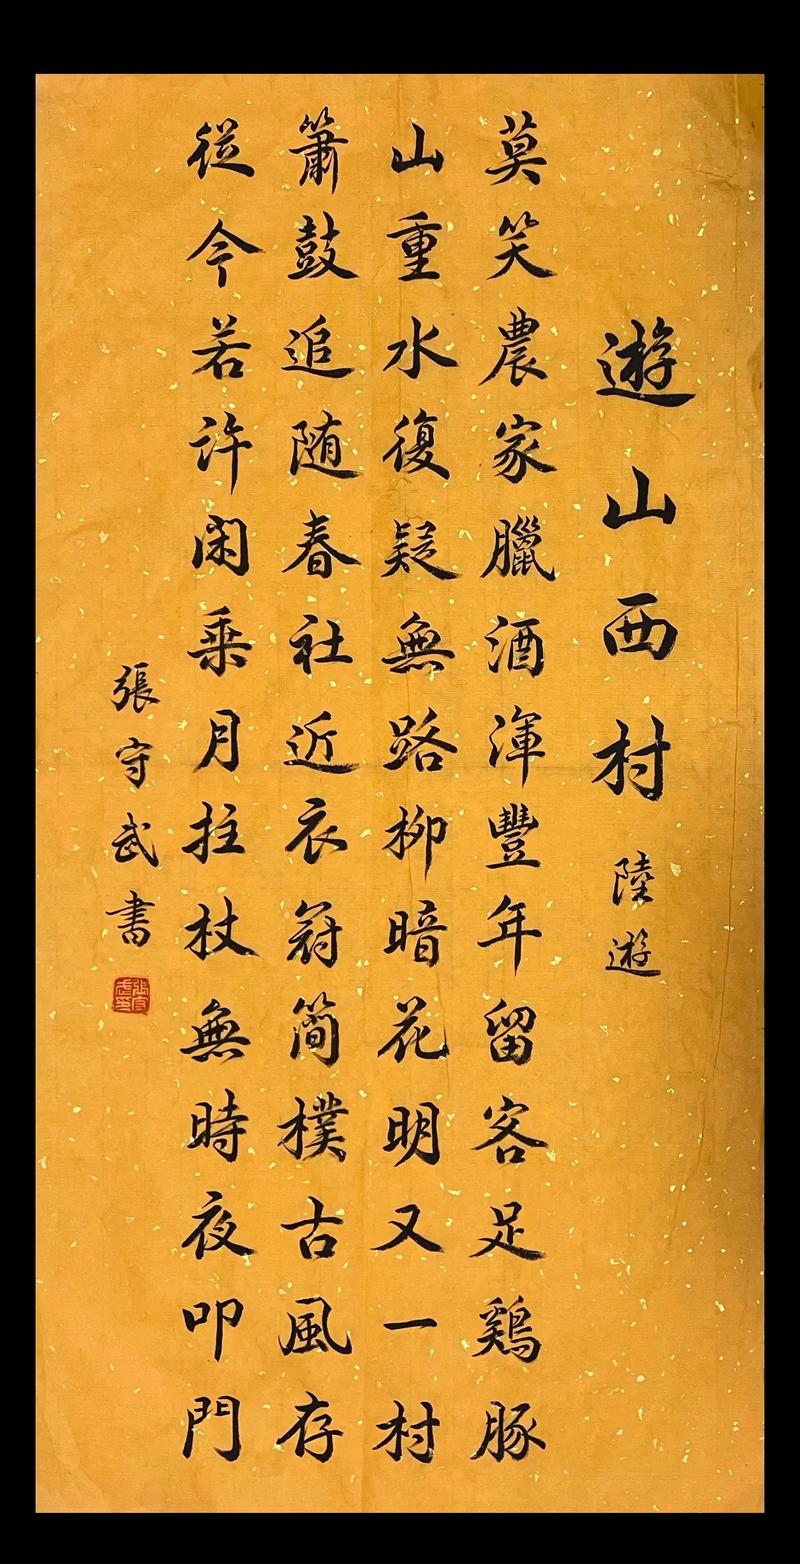 遊山西村 陸遊
莫笑農家臘酒渾豐年留客足鷄豚
山重水復疑無路柳暗花明又一村
簫鼓追随春社近衣冠簡樸古風存
從今若許閑乘月拄杖無時夜叩門
張守武書